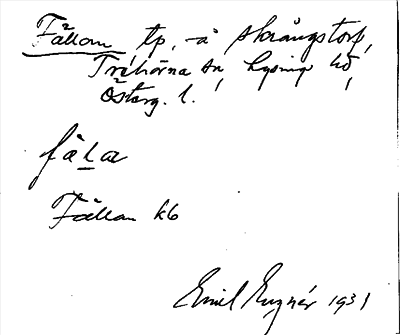 Fållan tp, å Skrångstorp,
Trehörna sn, Lysing hd,
Österg. l.
fåḷa
Fållan kb
Emil Eugnér 1931